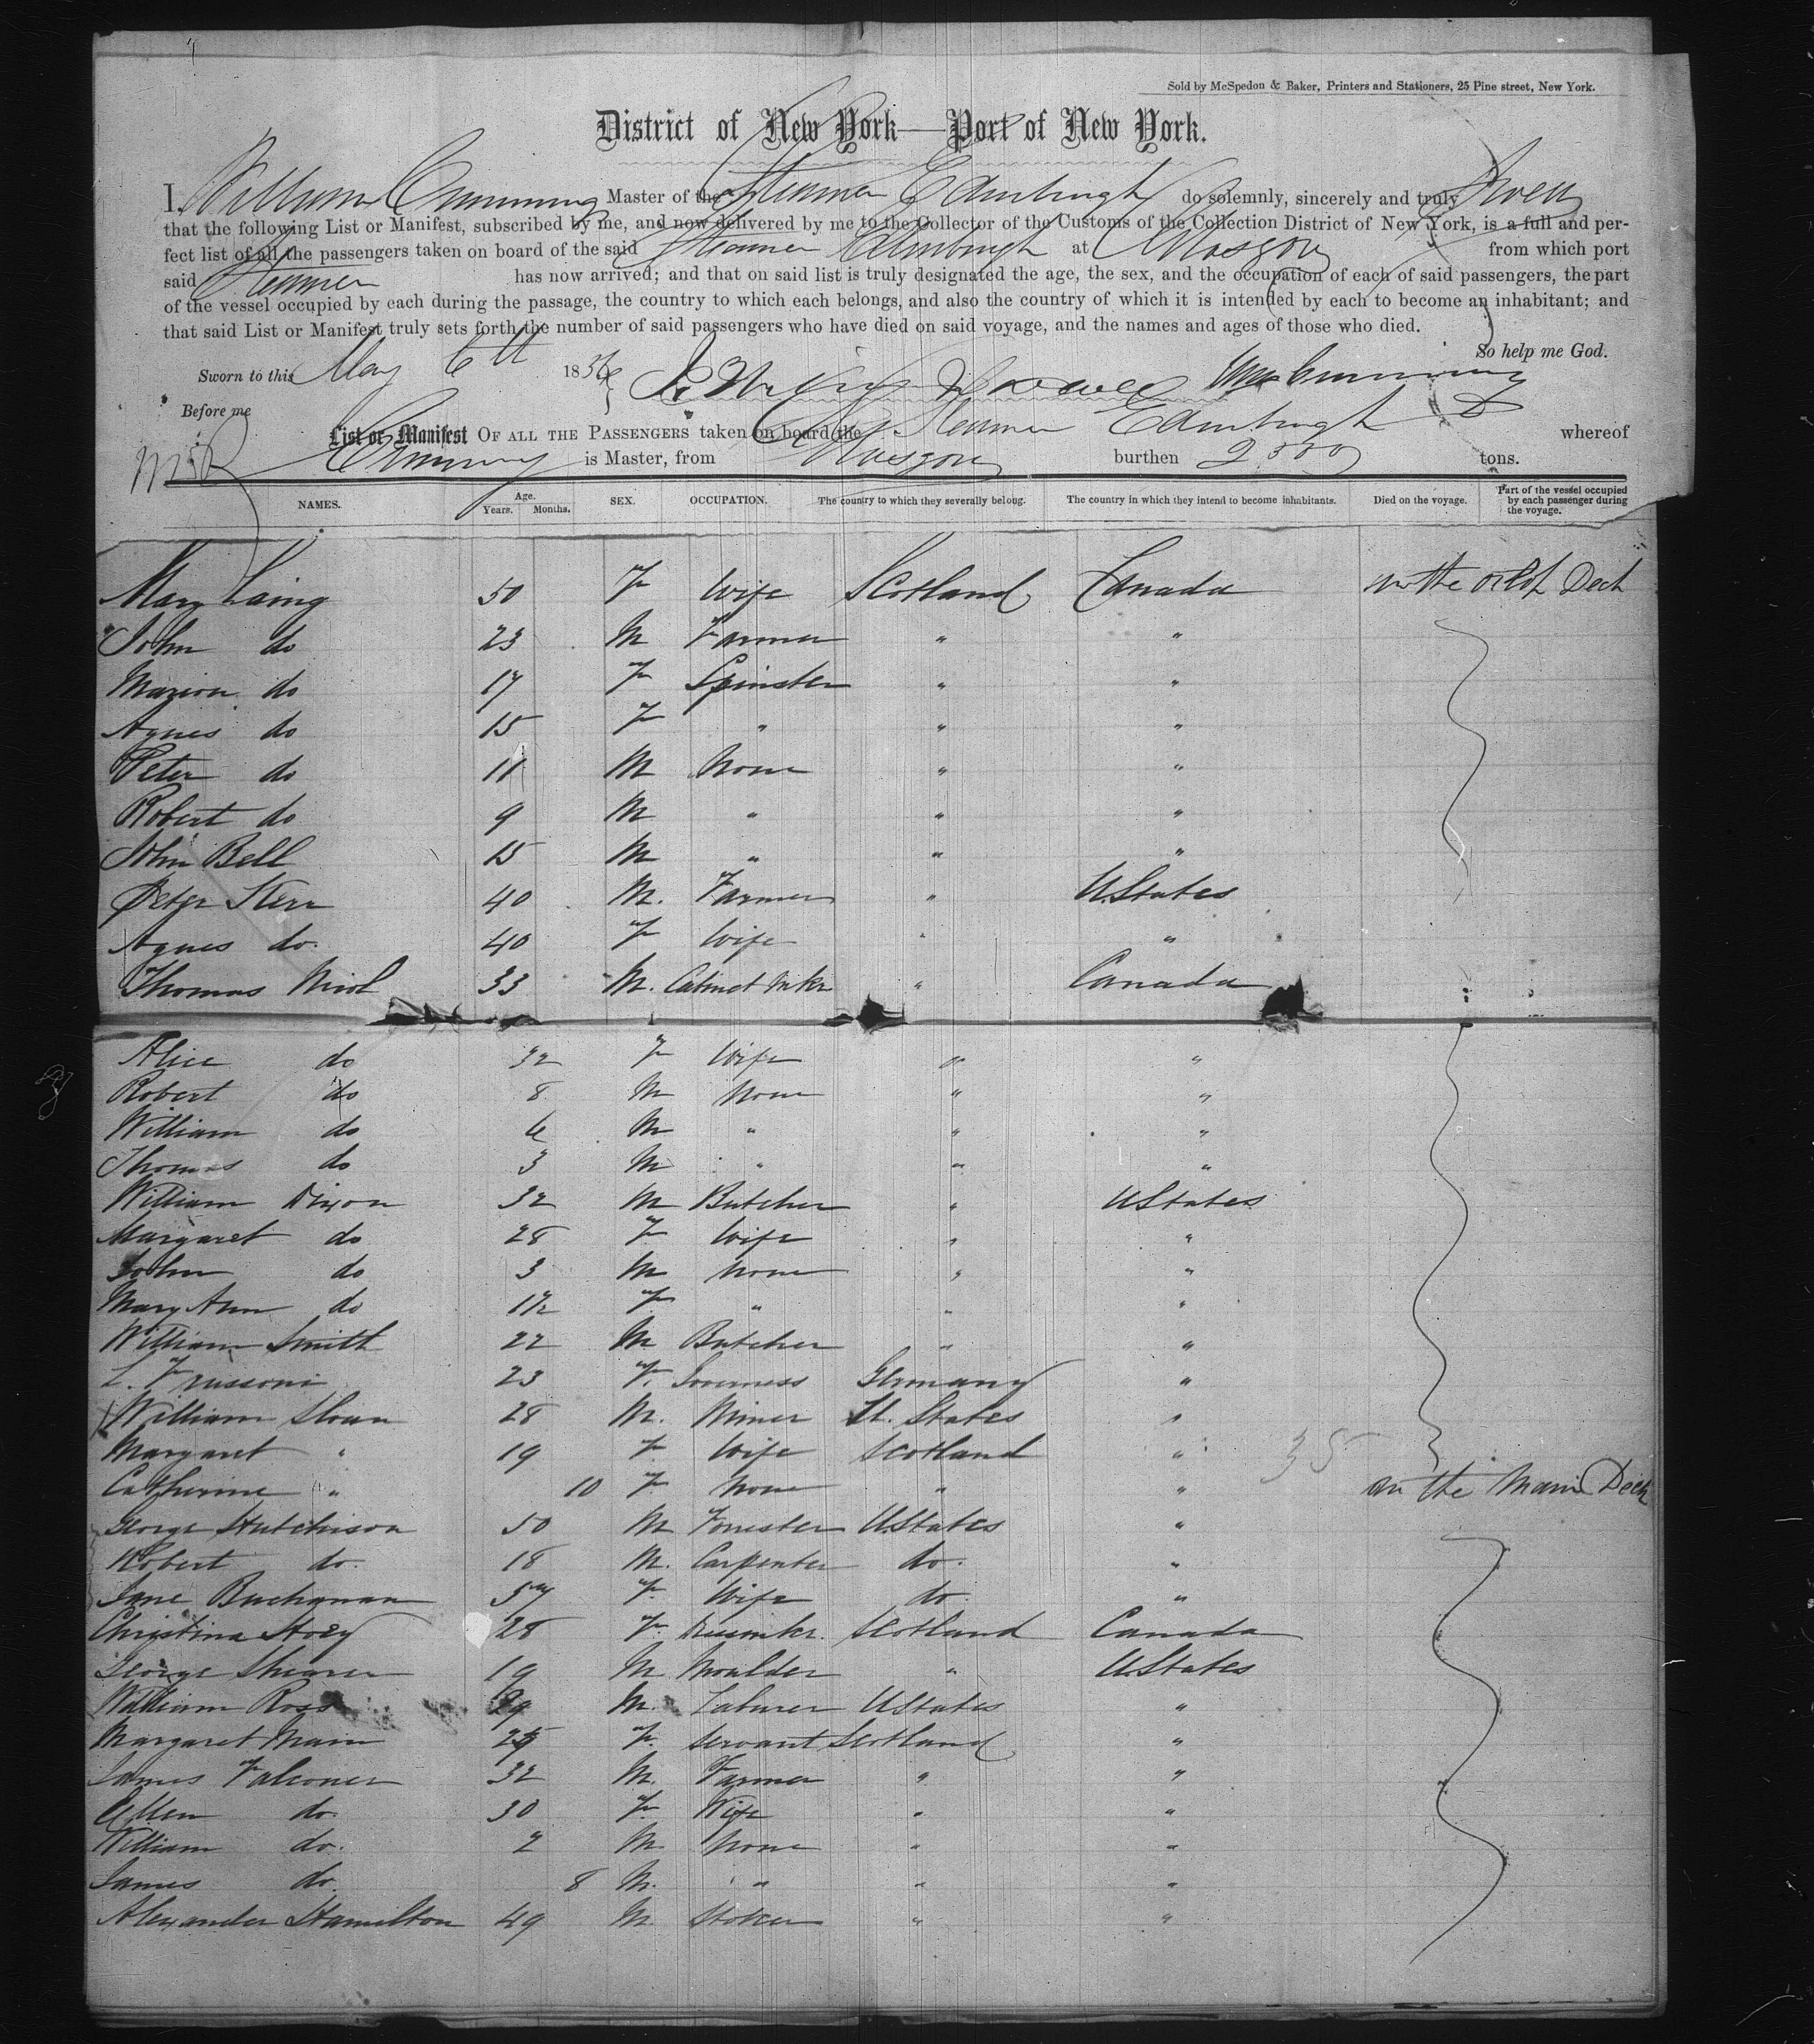 Sold by McSpedon & Baker, Printers and Stationers, 25 Pine street, New York.
District of New York—Port of New York.
I, William Cumming Master of the Steamer Edinburgh do solemnly, sincerely and truly Swear
that the following List or Manifest, subscribed by me, and now delivered by me to the Collector of the Customs of the Collection District of New York, is a full and per-
fect list of all the passengers taken on board of the said Steamer Edinburgh at Glasgow from which port
said Steamer has now arrived; and that on said list is truly designated the age, the sex, and the occupation of each of said passengers, the part
of the vessel occupied by each during the passage, the country to which each belongs, and also the country of which it is intended by each to become an inhabitant; and
that said List or Manifest truly sets forth the number of said passengers who have died on said voyage, and the names and ages of those who died.
So help me God.
Sworn to this May 6th 1856 Wm Cumming
Before me
List or Manifest OF ALL THE PASSENGERS taken on board the Steamer Edinburgh whereof
Cumming is Master, from Glasgow burthen 2500 tons.
NAMES. Age. Years. Months. SEX. OCCUPATION. The country to which they severally belong. The country in which they intend to become inhabitants. Died on the voyage. Part of the vessel occupied by each passenger during the voyage.
Mary Laing 50 F Wife Scotland Canada on the orlop Deck
John do 23 M Farmer " "
Marion do 17 F Spinster " "
Agnes do 15 F " " "
Peter do 11 M None " "
Robert do 9 M " " "
John Bell 15 M " " "
Peter Kerr 40 M. Farmer " U.States
Agnes do. 40 F Wife " "
Thomas Nicol 33 M. Cabinet Mkr " Canada
Alice do 32 F Wife " "
Robert do 8 M None " "
William do 6 M " " "
Thomas do 3 M " " "
William Dixon 32 M Butcher " UStates
Margaret do 28 F Wife " "
John do 3 M None " "
Mary Ann do 1½ F " " "
William Smith 22 M Butcher " "
L. 23 F. Governess Germany "
William Sloan 28 M. Miner U. States "
Margaret " 19 F Wife Scotland " 35
Catherine " 10 F None " " on the Main Deck
George Hutchison 50 M Forrester UStates "
Robert do. 18 M. Carpenter do. "
Jane Buchanan 57 F. Wife do "
Christina 28 F. Scotland Canada
George Shearer 19 M Moulder " UStates
William Ross 29 M. Laburer UStates "
Margaret Main 25 F. Servant Scotland "
James Falconer 32 M. Farmer " "
Ellen do. 30 F. Wife " "
William do. 2 M None " "
James do. 8 M. " " "
Alexander Hamilton 49 M. Stoker " "